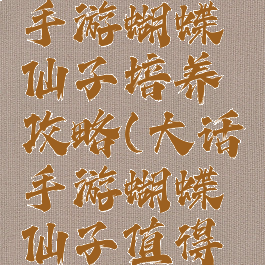 手游蝴蝶
仙子培养
攻略(大话
手游蝴蝶
仙子值得